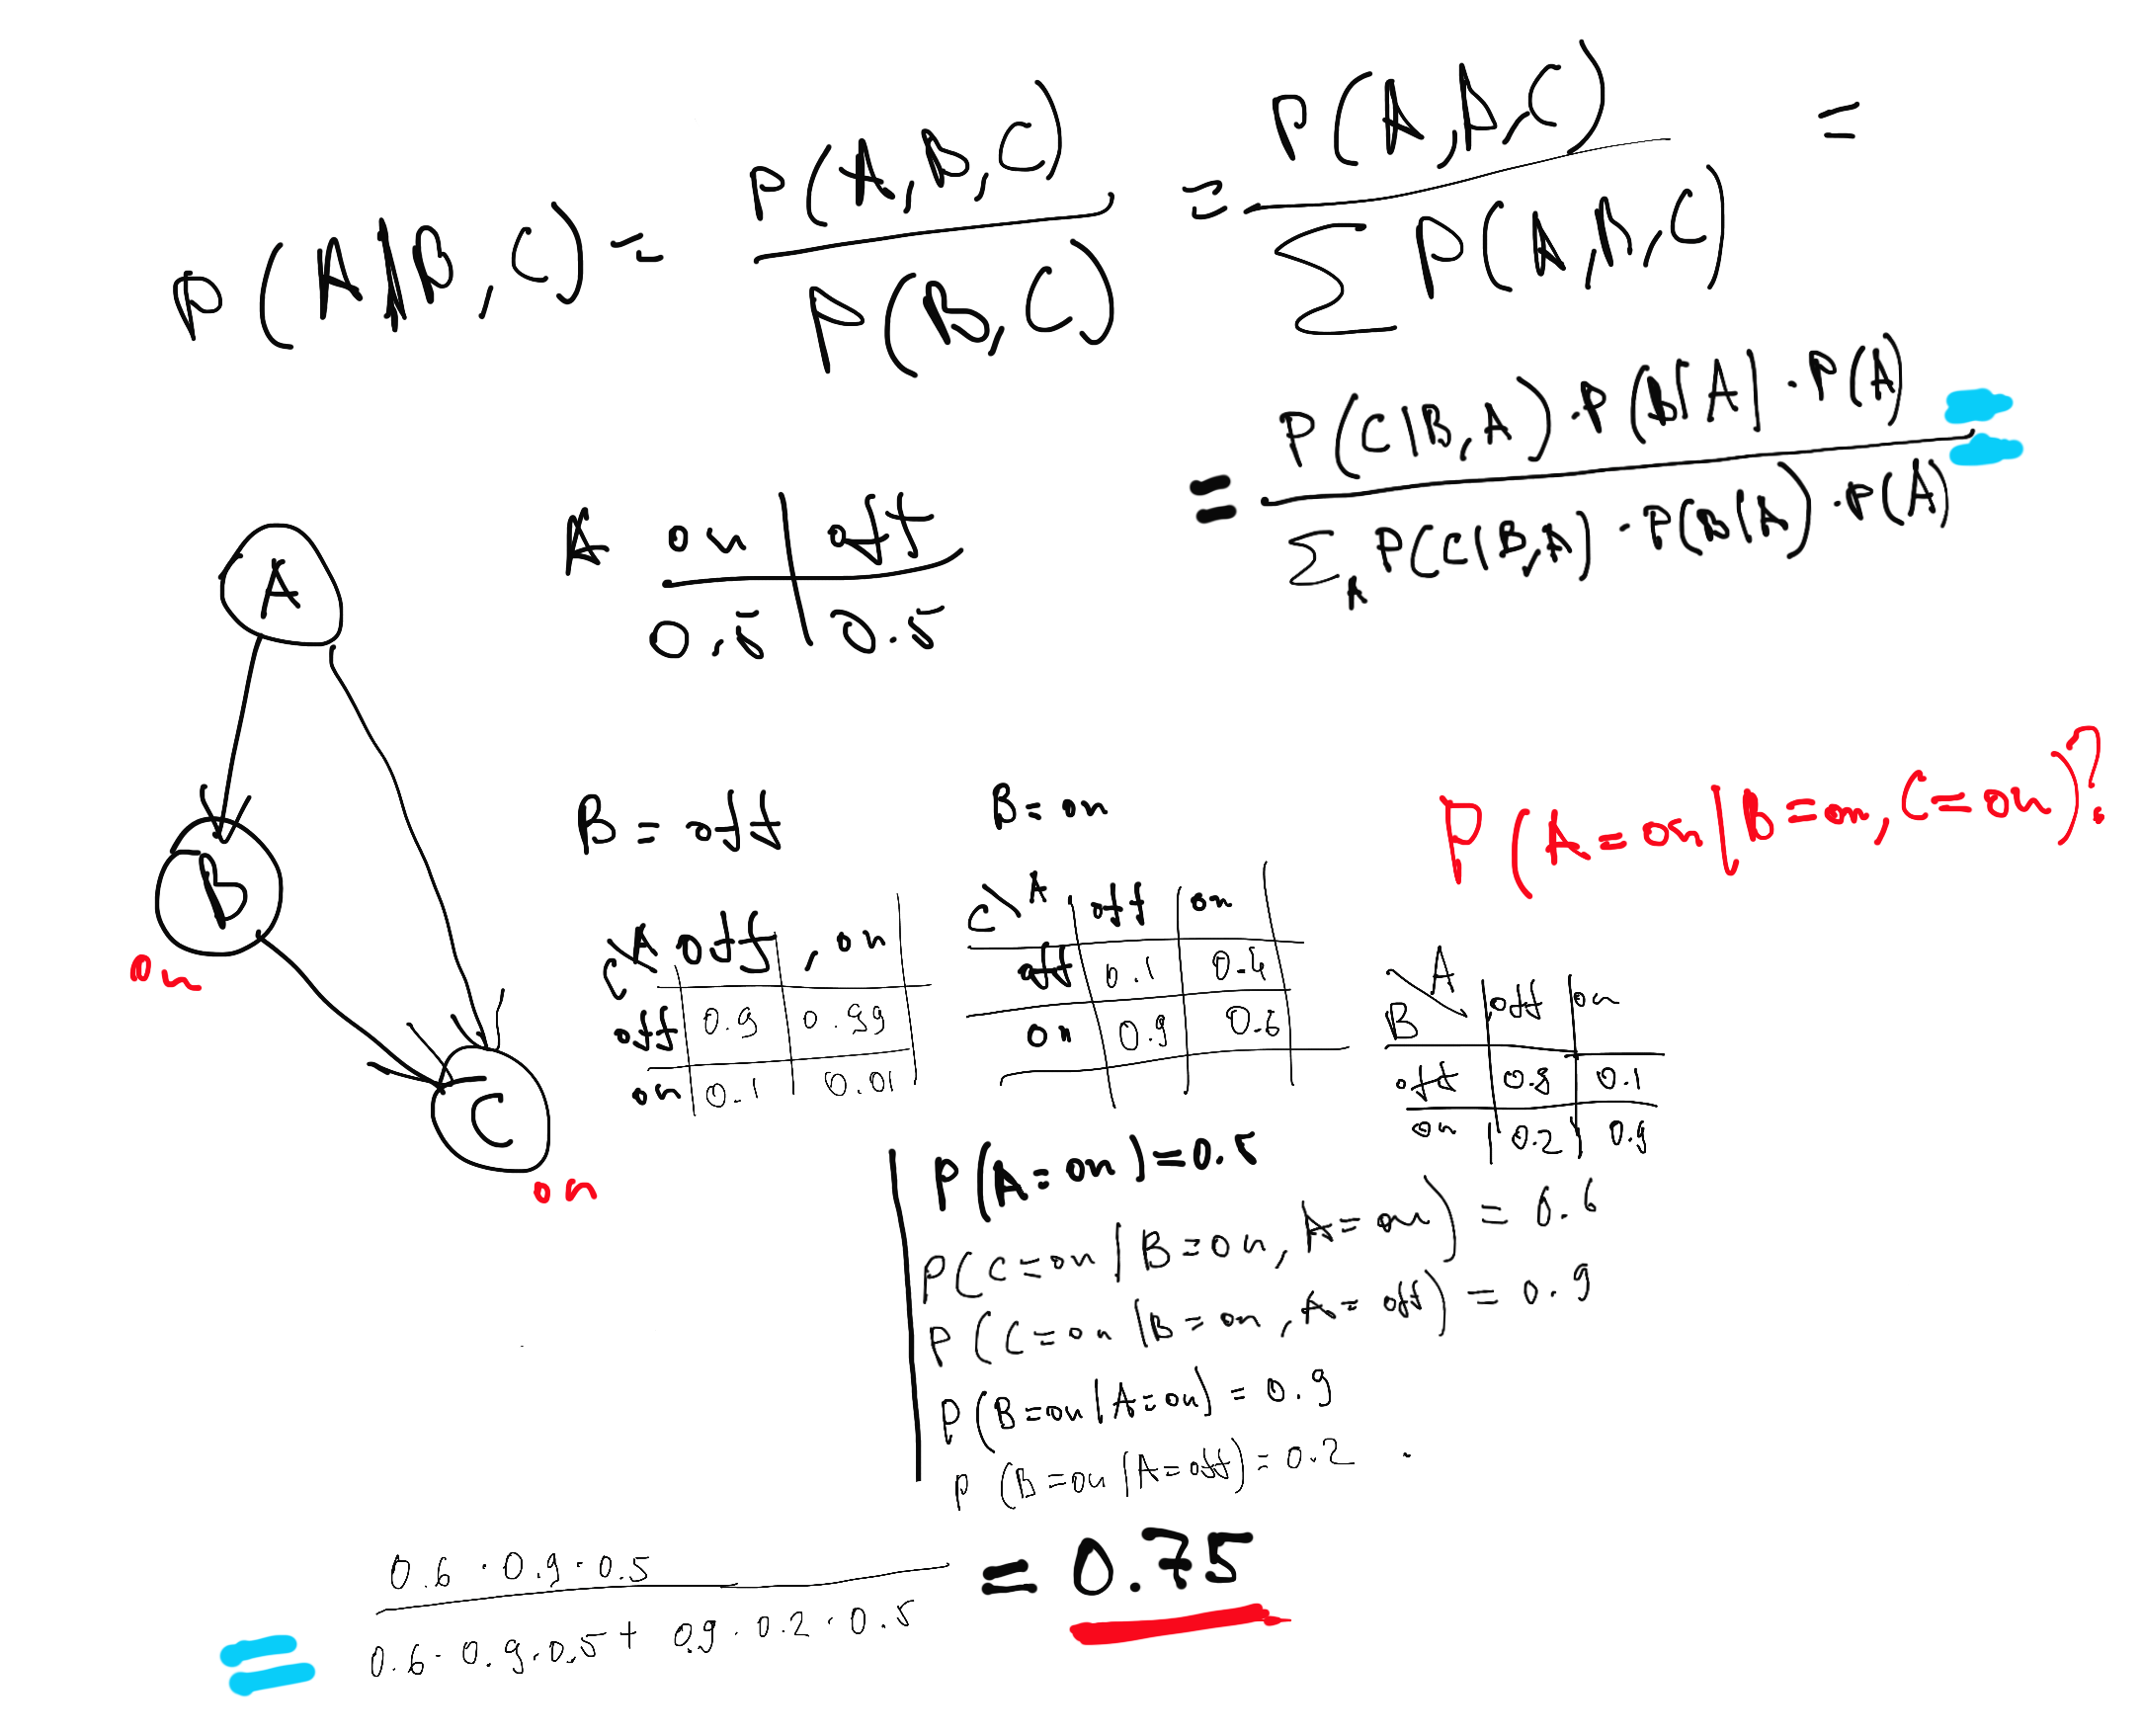 P(A|B,C) = P(A,B,C) / P(B,C) = P(A,B,C) / ∑ P(A,B,C) =
= P(C|B,A) · P(B|A] · P(A) / ∑_A P(C|B,A) · P(B|A) · P(A) =
A on | off
0.5 | 0.5
A
B
on
C
on
B = off
C\A off, on
off 0.9 0.99
on 0.1 0.01
B = on
C\A off on
off 0.1 0.4
on 0.9 0.6
P(A=on|B=on, C=on)?
A
B off on
off 0.8 0.1
on 0.2 0.9
P(A=on)=0.5
P(C=on|B=on, A=on) = 0.6
P(C=on|B=on, A=off) = 0.9
P(B=on|A=on) = 0.9
P(B=on|A=off) = 0.2
= 0.6 · 0.9 · 0.5 / 0.6 · 0.9 · 0.5 + 0.9 · 0.2 · 0.5 = 0.75